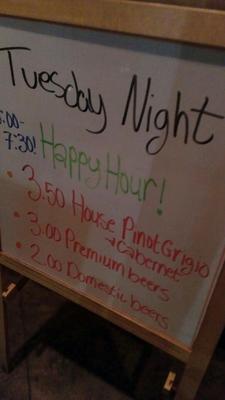 Tuesday Night
:00-
7:30!
Happy Hour!
• 3.50 House Pinot Grigio
→ Cabernet
• 3.00 Premium beers
• 2.00 Domestic beers